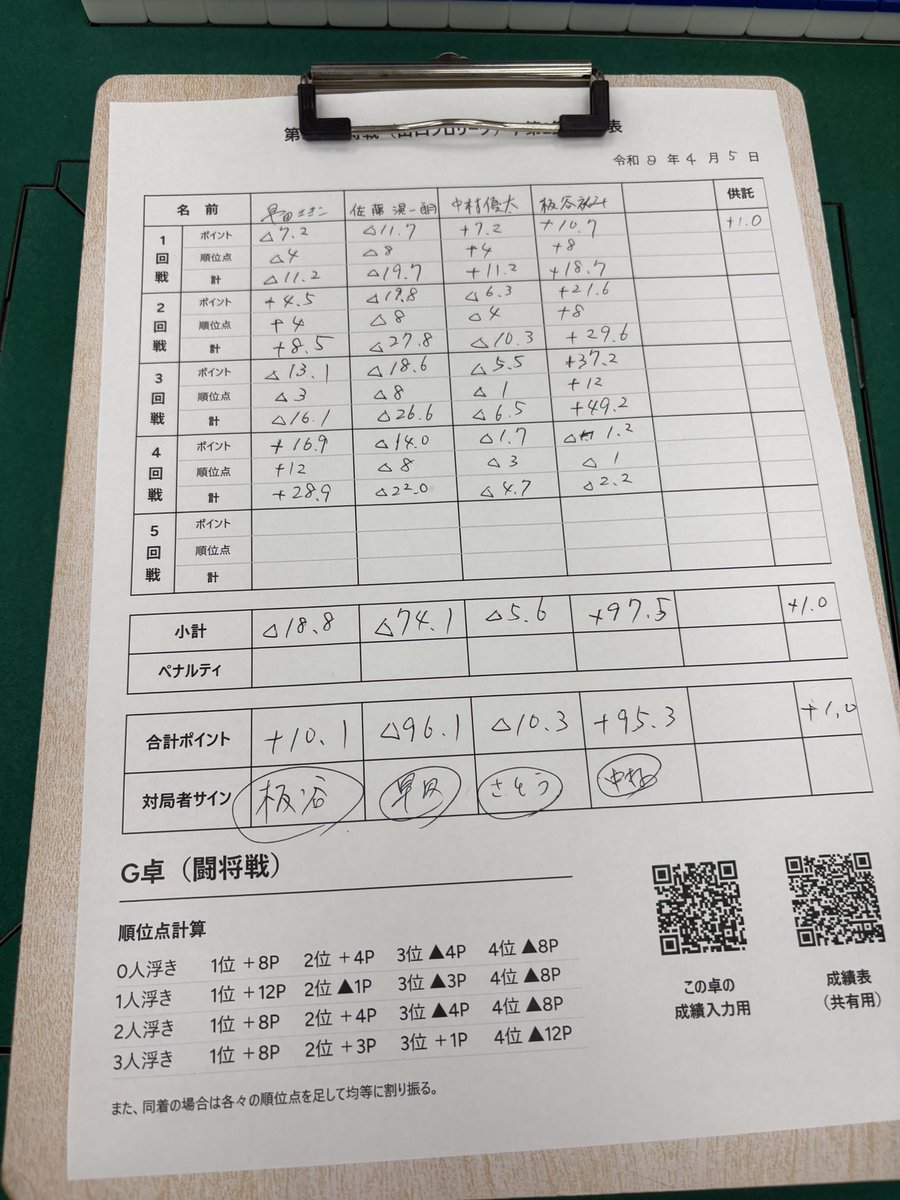 第 戦(山口プロリーグ) 第 表
令和8年4月5日
名前 早田 佐藤滉一朗 中村優太 板谷 供託
1回戦 ポイント △7.2 △11.7 +7.2 +10.7 +1.0
順位点 △4 △8 +4 +8
計 △11.2 △19.7 +11.2 +18.7
2回戦 ポイント +4.5 △19.8 △6.3 +21.6
順位点 +4 △8 △4 +8
計 +8.5 △27.8 △10.3 +29.6
3回戦 ポイント △13.1 △18.6 △5.5 +37.2
順位点 △3 △8 △1 +12
計 △16.1 △26.6 △6.5 +49.2
4回戦 ポイント +16.9 △14.0 △1.7 △1.2
順位点 +12 △8 △3 △1
計 +28.9 △22.0 △4.7 △2.2
5回戦 ポイント
順位点
計
小計 △18.8 △74.1 △5.6 +97.5 +1.0
ペナルティ
合計ポイント +10.1 △96.1 △10.3 +95.3 +1.0
対局者サイン 板谷 早田 さとう 中村
G卓(闘将戦)
順位点計算
0人浮き 1位+8P 2位+4P 3位▲4P 4位▲8P
1人浮き 1位+12P 2位▲1P 3位▲3P 4位▲8P
2人浮き 1位+8P 2位+4P 3位▲4P 4位▲8P
3人浮き 1位+8P 2位+3P 3位+1P 4位▲12P
また、同着の場合は各々の順位点を足して均等に割り振る。
この卓の
成績入力用
成績表
(共有用)